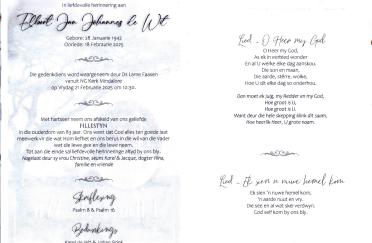 In liefdevolle herinnering aan
Elbert Jan Johannes de Wit
Gebore: 28 Januarie 1942
Oorlede: 18 Februarie 2025
Die gedenkdiens word waargeneem deur Ds Lame Faasen
vanuit NG Kerk Mindalore
op Vrydag 21 Februarie 2025 om 10:30.
Met hartseer neem ons afskeid van ons geliefde
FILLESTYN
in die ouderdom van 83 jaar. Ons weet dat God alles ten goede laat
meewerk vir die wat Hom liefhet en ons berus in die wil van die Vader
wat die lewe gee en die lewe neem.
Tot aan die einde sal liefdevolle herinneringe altyd by ons bly.
Nagelaat deur sy vrou Christine, seuns Karel & Jacque, dogter Nina,
familie en vriende
Skriflesing
Psalm 8 & Psalm 16
Bedankings
Lied - O Heer my God
O Heer my God,
As ek in verbaas wonder
En al U werke elke dag aanskou.
Die son en maan,
Die aarde, sterre, wolke,
Hoe U dit elke dag so onderhou.
Dan moet ek jug, my Redder en my God,
Hoe groot is U,
Hoe groot is U.
Want deur die hele skepping klink dit saam,
Hoe heerlik Heer, U grote naam.
Lied - Ek sien 'n nuwe hemel kom
Ek sien 'n nuwe hemel kom,
'n aarde nuut en vry.
Die see en al wat sker verdwyn.
God self kom by ons bly.